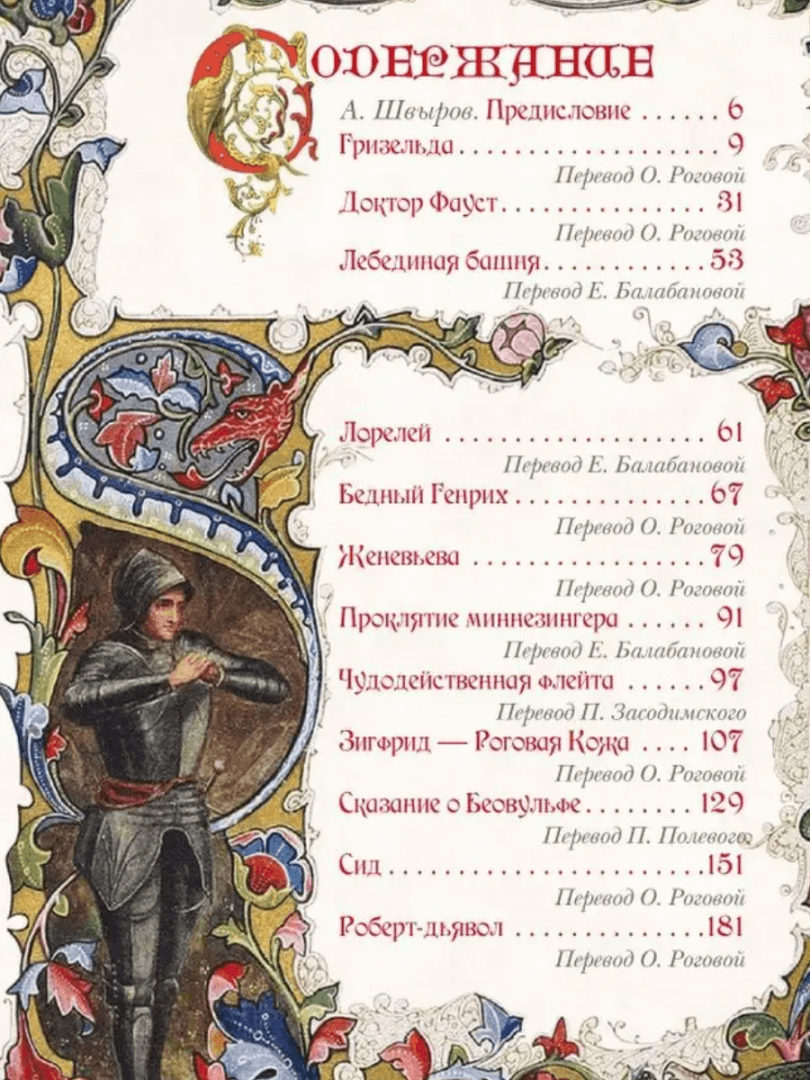 СОДЕРЖАНИЕ
А. Швыров. Предисловие ...... 6
Гризельда.................... 9
Перевод О. Роговой
Доктор Фауст................ 31
Перевод О. Роговой
Лебединая башня............. 53
Перевод Е. Балабановой
Лорелей .................... 61
Перевод Е. Балабановой
Бедный Генрих............... 67
Перевод О. Роговой
Женевьева .................. 79
Перевод О. Роговой
Проклятие миннезингера ...... 91
Перевод Е. Балабановой
Чудодейственная флейта ......97
Перевод П. Засодимского
Зигфрид — Роговая Кожа .... 107
Перевод О. Роговой
Сказание о Беовульфе........ 129
Перевод П. Полевого
Сид ........................151
Перевод О. Роговой
Роберт-дьявол ...............181
Перевод О. Роговой